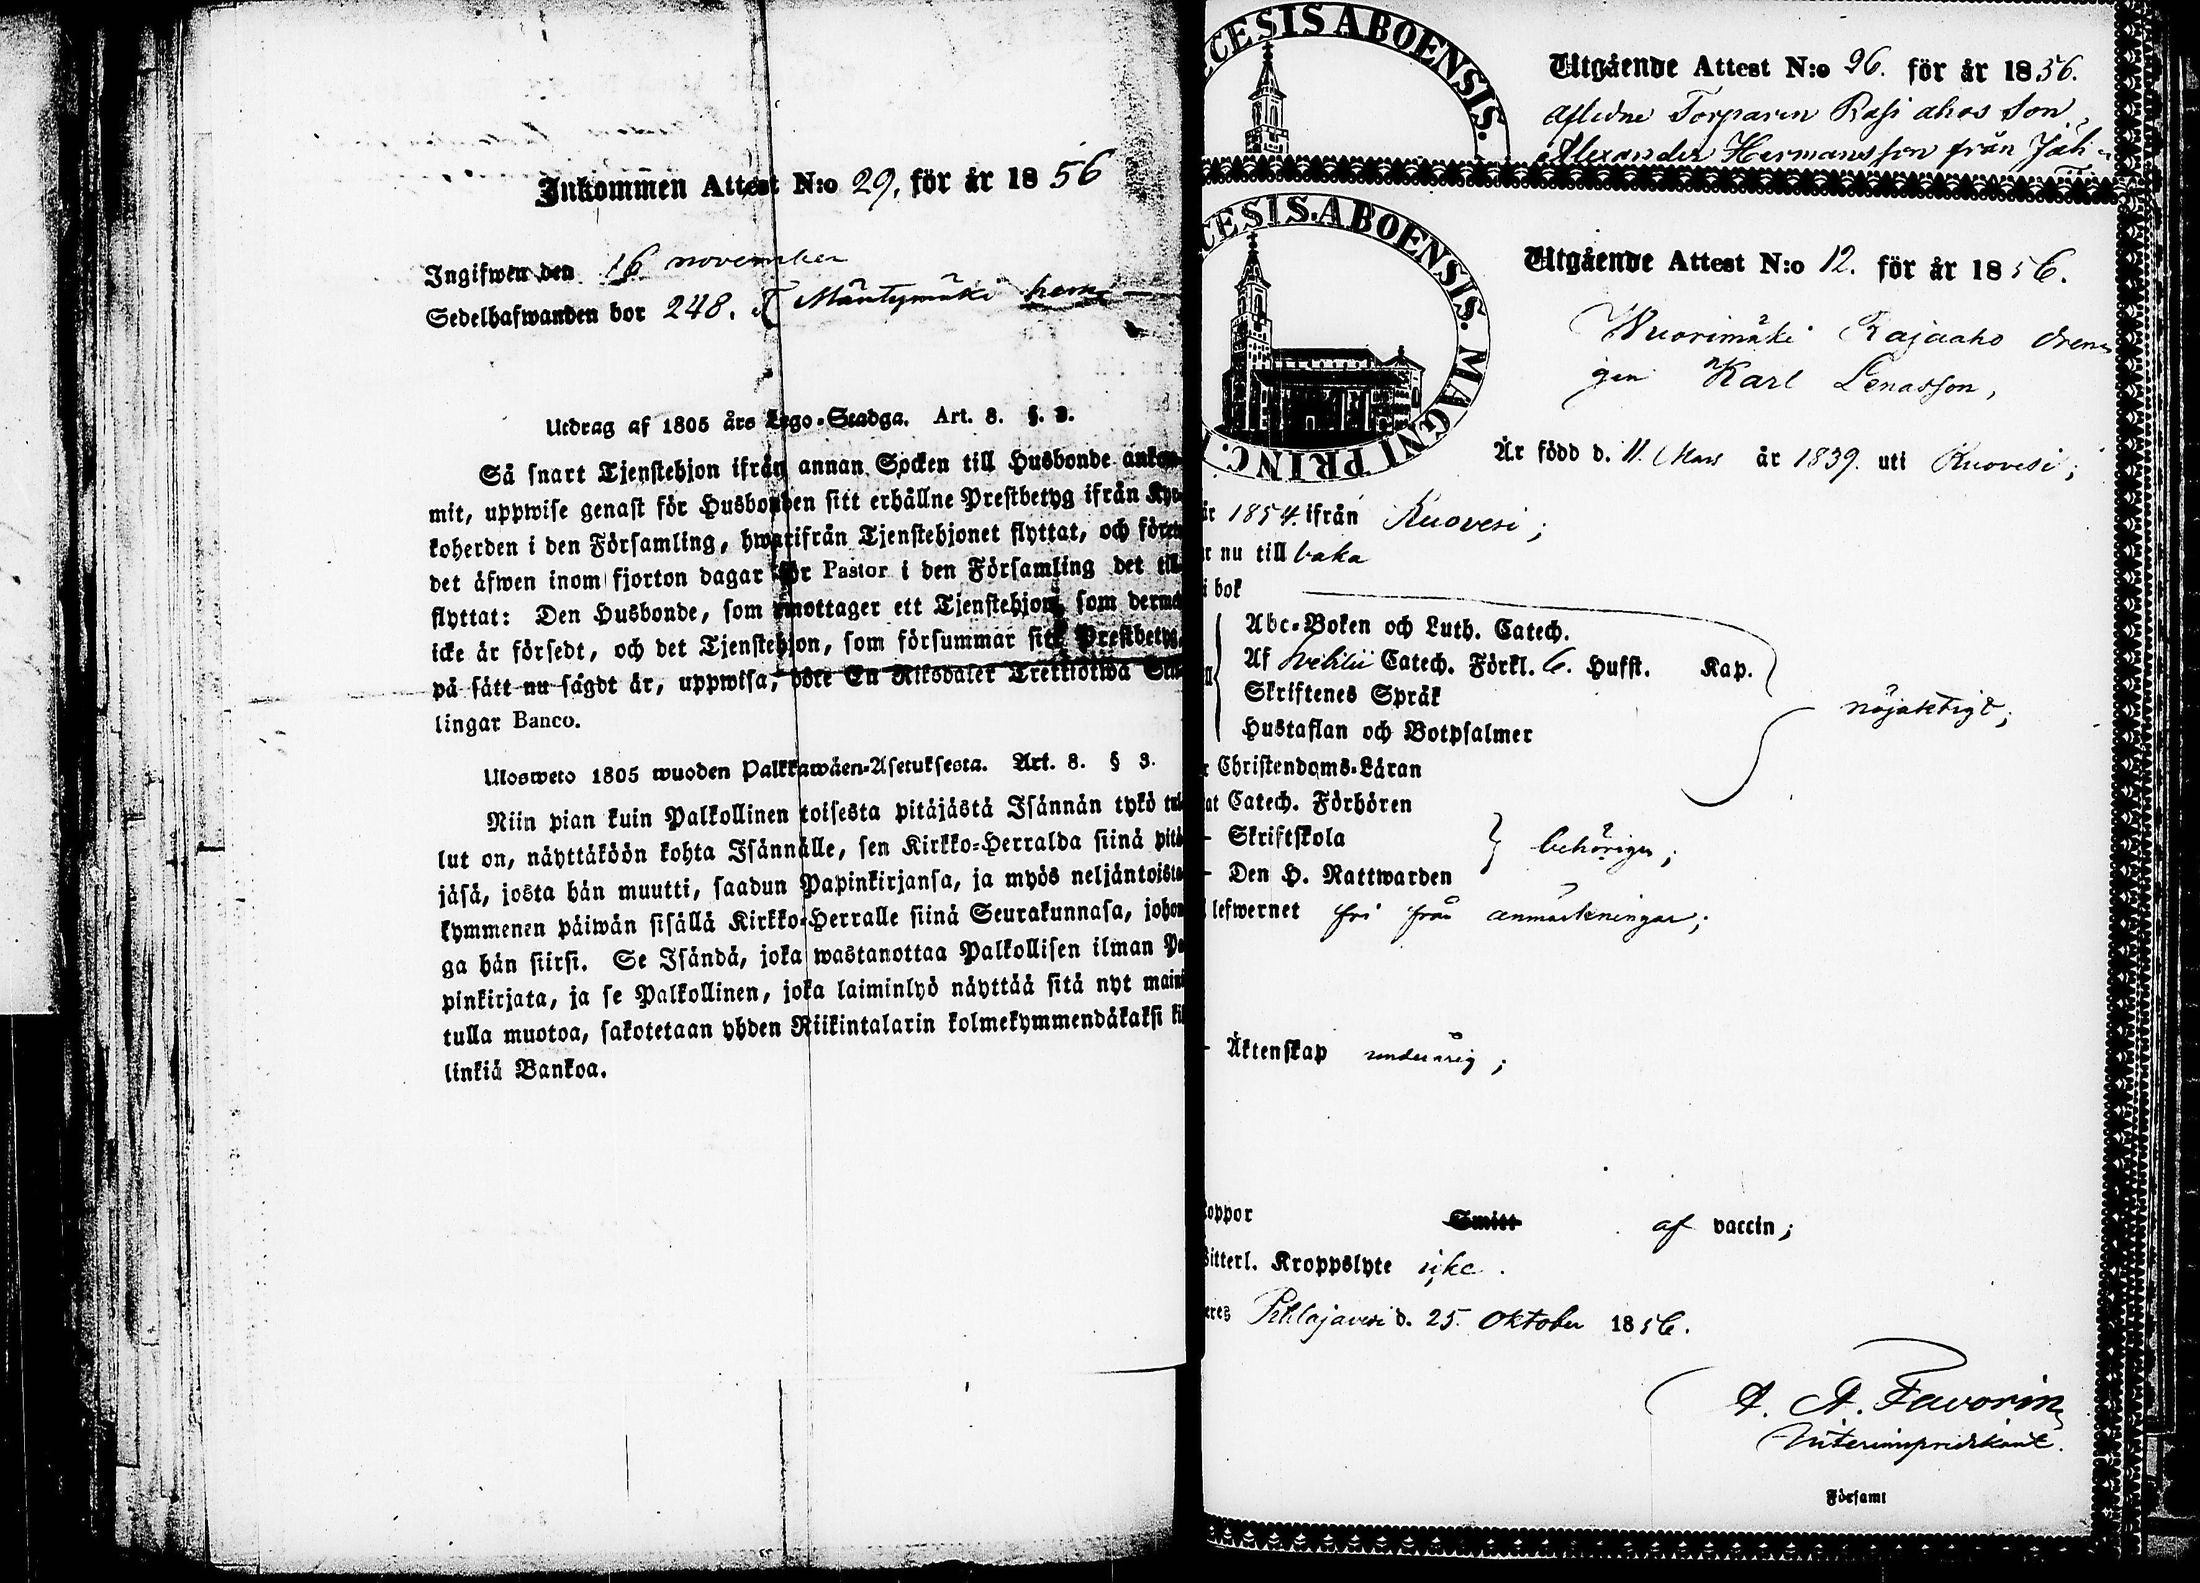 Inkommen Attest N:o 29, för år 1856
Ingifwen den 16 november
Sedelhafwanden bor 248. Mäntymäki hem
Utdrag af 1805 års Lego-Stadga. Art. 8. §. 3.
Så snart Tjenstehjon ifrån annan Socken till Husbonde ankom-
mit, uppwise genast för Husbonden sitt erhållne Prestbetyg ifrån Kyr-
koherden i den Församling, hwarifrån Tjenstehjonet flyttat, och förete
det äfwen inom fjorton dagar för Pastor i den Församling det till-
flyttat: Den Husbonde, som emottager ett Tjenstehjon, som dermed
icke är försedt, och det Tjenstehjon, som försummar sitt Prestbetyg,
på sätt nu sagdt är, uppwisa, böte En Riksdaler Trettiotwå Skil-
lingar Banco.
Ulosweto 1805 wuoden Palkkawäen-Asetuksesta. Art. 8. § 3.
Niin pian kuin Palkollinen toisesta pitäjästä Isännän tykö tul-
lut on, näyttäköön kohta Isännälle, sen Kirkko-Herralda siinä pitä-
jäsä, josta hän muutti, saadun Papinkirjansa, ja myös neljäntoista-
kymmenen päiwän sisällä Kirkko-Herralle siinä Seurakunnasa, johon-
ga hän siirsi. Se Isändä, joka wastanottaa Palkollisen ilman Pa-
pinkirjata, ja se Palkollinen, joka laiminlyö näyttää sitä nyt maini-
tulla muotoa, sakotetaan yhden Riikintalarin kolmekymmendäkaksi kil-
linkiä Bankoa.
CESIS ABOENSIS.
Utgående Attest N:o 26. för år 1856.
Aflidne Torparen Rasi ahos Son
Alexander Hermansson från Jäh
CESIS.ABOENSIS. MAGNI PRINC.
Utgående Attest N:o 12. för år 1856.
Wuorimäki Rajaaho dren
gen Karl Lenasson,
Är född d. 11. Mars år 1839. uti Ruovesi;
år 1854. ifrån Ruovesi;
r nu till baka
i bok
Abc-Boken och Luth. Catech.
Af Svebilii Catech. Förkl. 6. Hufst. Kap.
Skriftenes Språk
Hustaflan och Botpsalmer
nöjaktigt;
r Christendoms-Läran
at Catech. Förhören
- Skriftskola
behörigen;
- Den H. Nattwarden
lefwernet fri från anmärkningar;
- Äktenskap underårig;
koppor Smitt af vaccin;
Witterl. Kroppslyte icke.
eres Pihlajavesi d. 25. Oktober 1856.
A. A. Favorin
Interimspredikant.
Församl